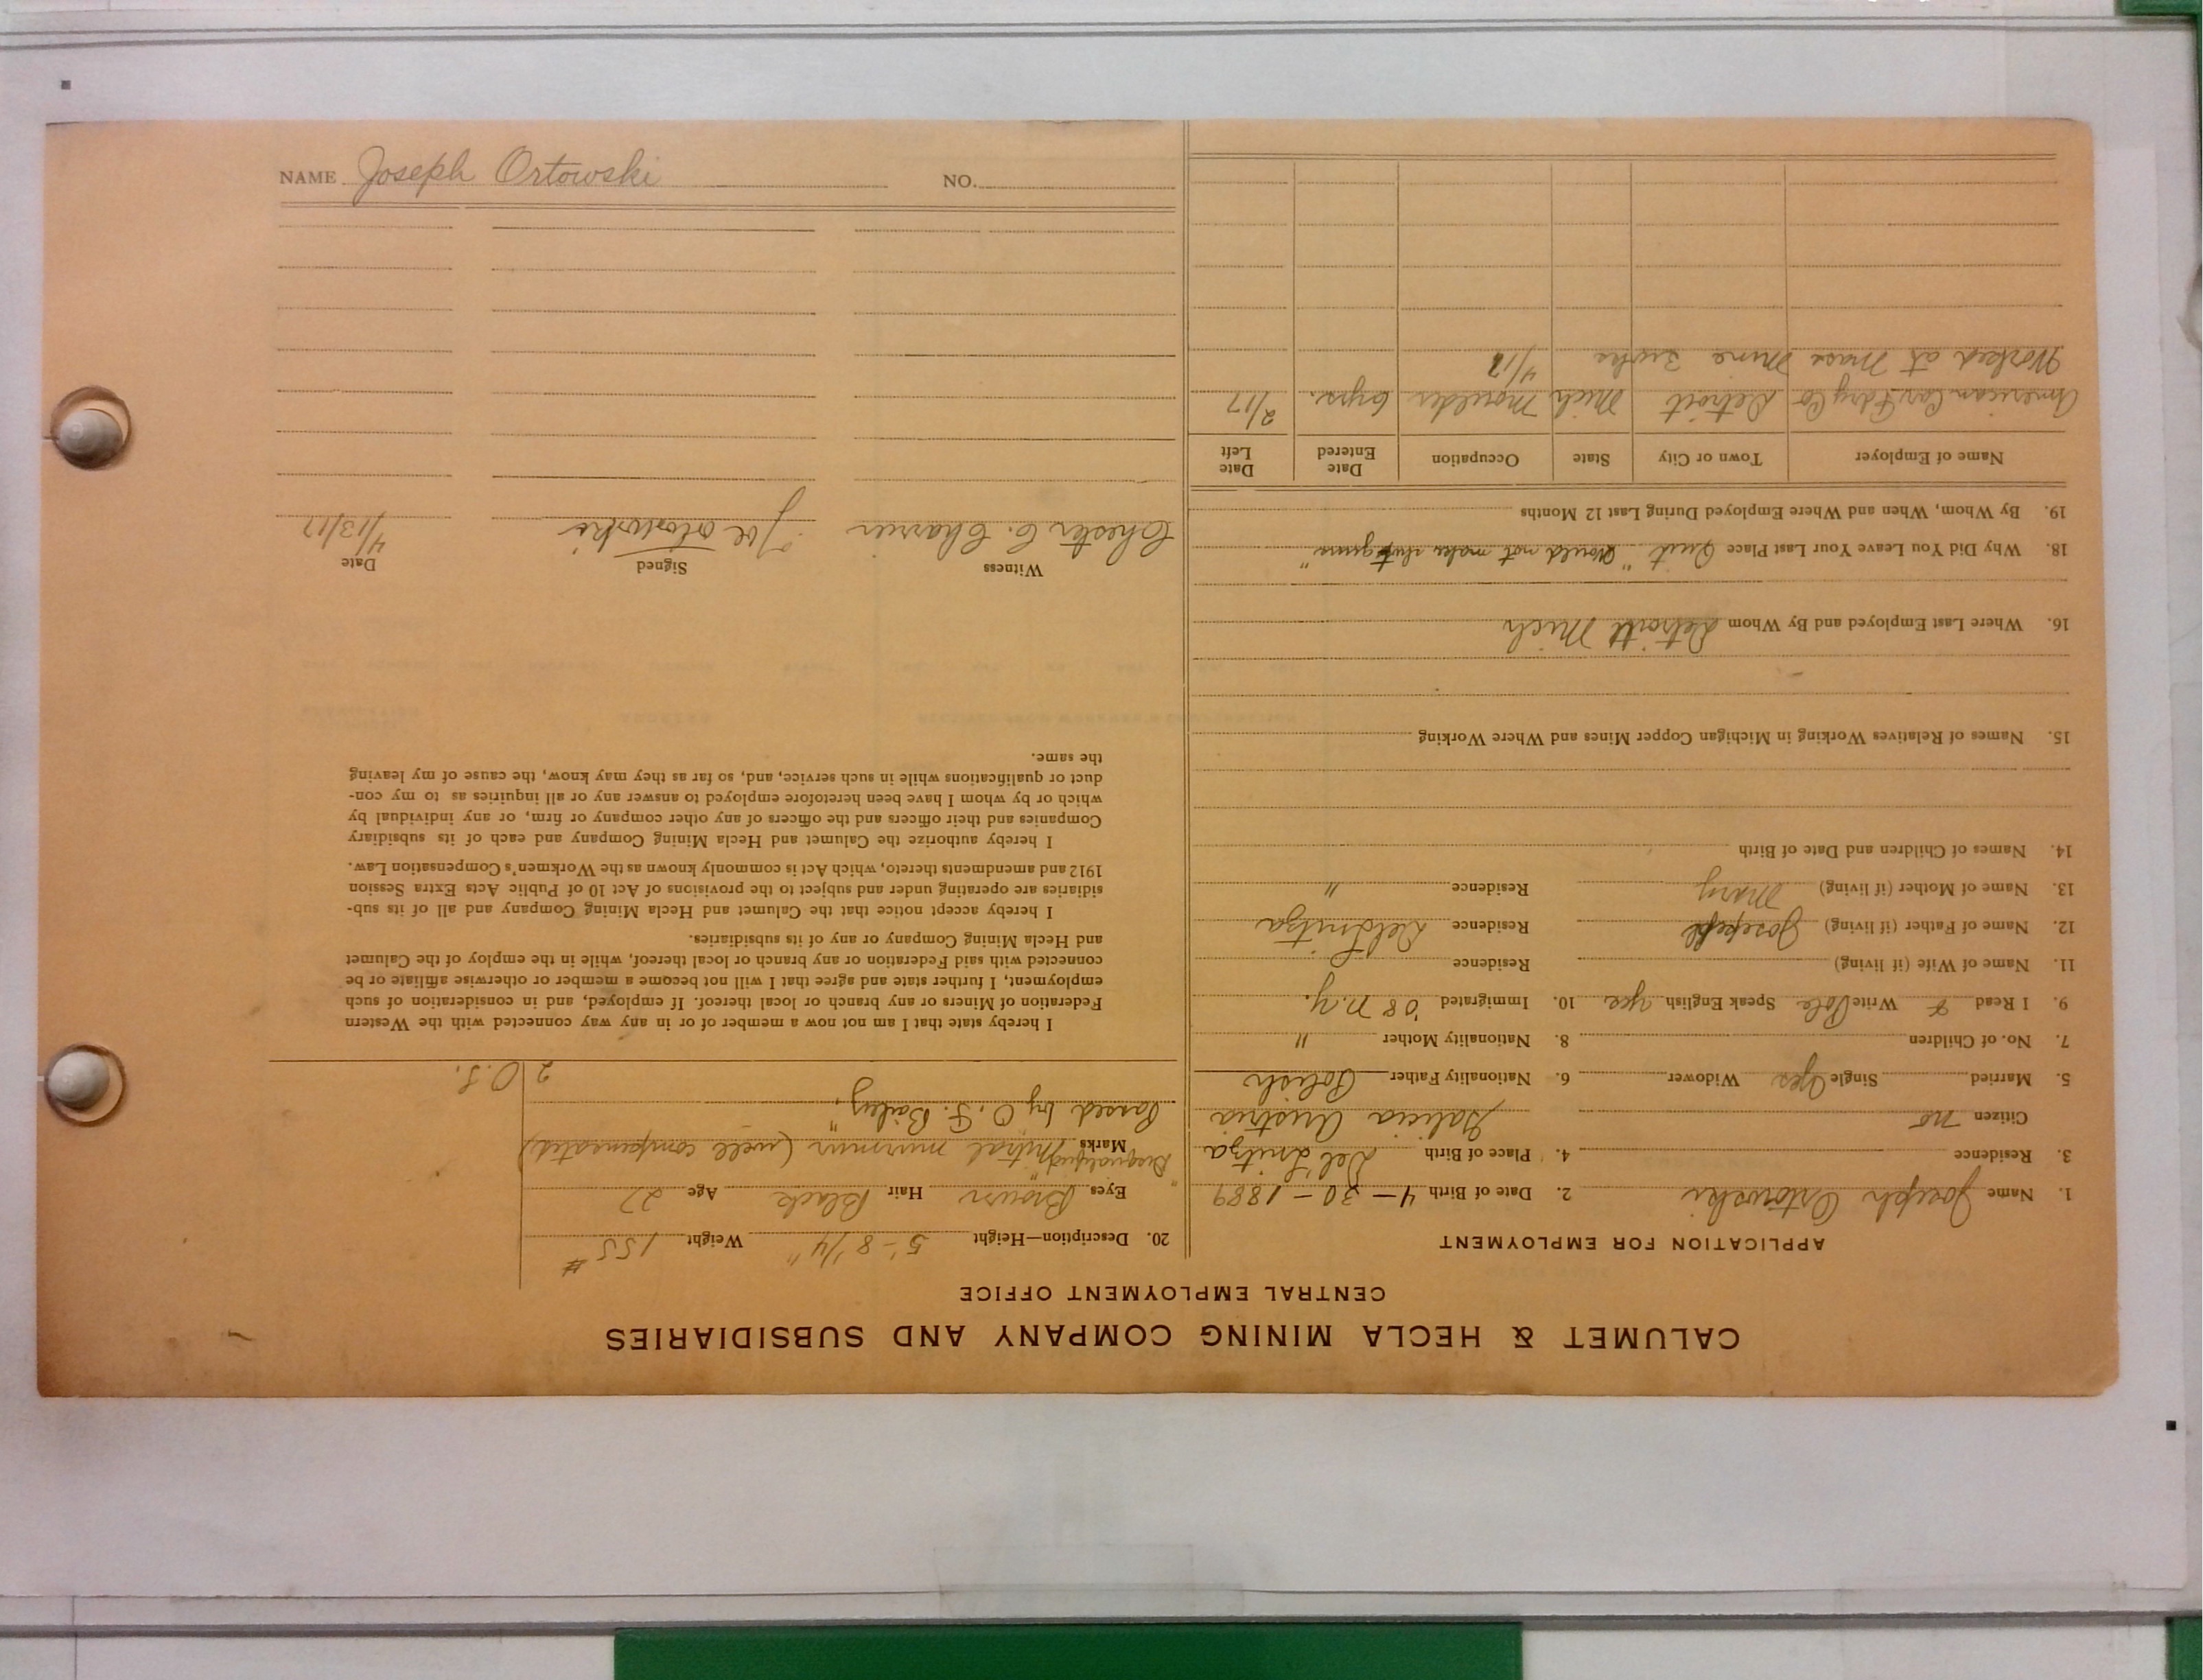 CALUMET & HECLA MINING COMPANY AND SUBSIDIARIES
CENTRAL EMPLOYMENT OFFICE
APPLICATION FOR EMPLOYMENT
1. Name Joseph Ortowski 2. Date of Birth 4-30-1889
3. Residence 4. Place of Birth
Citizen no Galicia Austria
5. Married Single Yes Widower 6. Nationality Father Polish
7. No. of Children 8. Nationality Mother "
9. I Read & Write Pole Speak English yes 10. Immigrated '08 N.Y.
11. Name of Wife (if living) Residence
12. Name of Father (if living) Joseph Residence
13. Name of Mother (if living) Mary Residence "
14. Names of Children and Date of Birth
15. Names of Relatives Working in Michigan Copper Mines and Where Working
16. Where Last Employed and By Whom Detroit Mich
18. Why Did You Leave Your Last Place Quit "Would not make
19. By Whom, When and Where Employed During Last 12 Months
Name of Employer Town or City State Occupation Date Entered Date Left
American Car & Fdry Co Detroit Mich Moulder 6 yrs. 2/17
Worked at Mass Mine 4/17
20. Description—Height 5'-8 1/4" Weight 155 #
Eyes Brown Hair Black Age 27
"Disqualified Marks Mitral murmur (well compensated)
Passed by O. F. Bailey."
2 O.S.
I hereby state that I am not now a member of or in any way connected with the Western
Federation of Miners or any branch or local thereof. If employed, and in consideration of such
employment, I further state and agree that I will not become a member or otherwise affiliate or be
connected with said Federation or any branch or local thereof, while in the employ of the Calumet
and Hecla Mining Company or any of its subsidiaries.
I hereby accept notice that the Calumet and Hecla Mining Company and all of its sub-
sidiaries are operating under and subject to the provisions of Act 10 of Public Acts Extra Session
1912 and amendments thereto, which Act is commonly known as the Workmen's Compensation Law.
I hereby authorize the Calumet and Hecla Mining Company and each of its subsidiary
Companies and their officers and the officers of any other company or firm, or any individual by
which or by whom I have been heretofore employed to answer any or all inquiries as to my con-
duct or qualifications while in such service, and, so far as they may know, the cause of my leaving
the same.
Witness Signed Date
Chester C. Charrier Joe 4/13/17
NAME Joseph Ortowski NO.